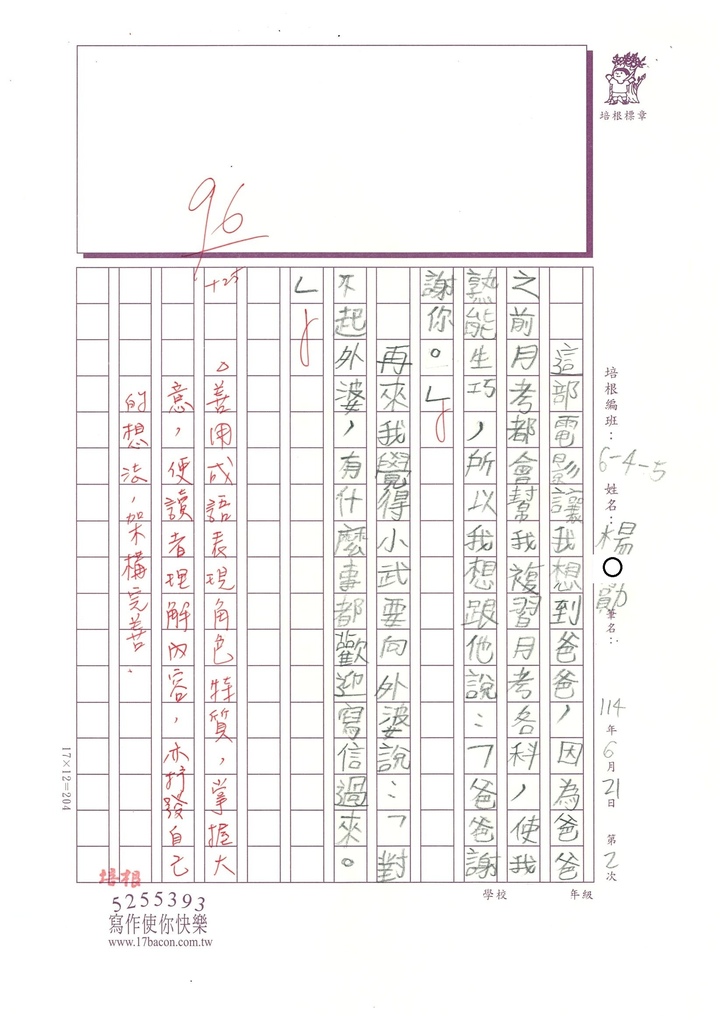 培根標章
培根編班：6-4-5
姓名：楊○勛
筆名：
114年6月21日
第2次
學校
年級
這部電影讓我想到爸爸，因為爸爸
之前月考都會幫我複習月考各科，使我
熟能生巧，所以我想跟他說：「爸爸謝
謝你。」
再來我覺得小武要向外婆說：「對
不起外婆，有什麼事都歡迎寫信過來。
」
96
+25
。善用成語表現角色特質，掌握大
意，使讀者理解內容，亦抒發自己
的想法，架構完善．
17×12=204
培根
5255393
寫作使你快樂
www.17bacon.com.tw